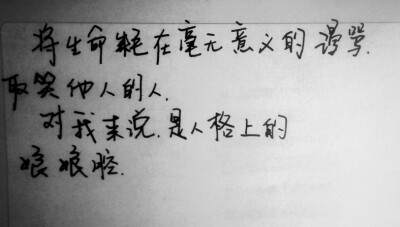 将生命耗在毫无意义的谩骂.
取笑他人的人.
对我来说.是人格上的
娘娘腔.